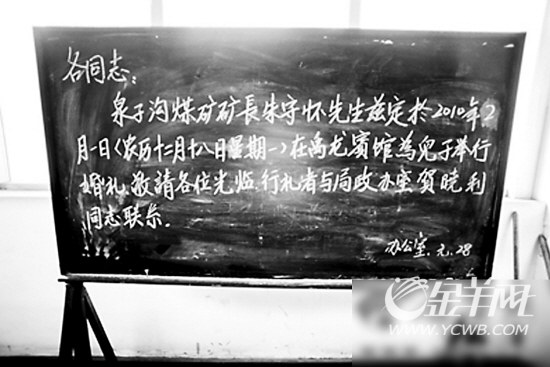 各同志：
泉子沟煤矿矿長朱守怀先生兹定於2010年2
月一日(农历十二月十八日星期一)在禹龙賓馆為兒子举行
婚礼.敬請各位光临.行礼者与局政办室贺晓利
同志联系.
办公室.元.28
金羊网
WWW.YCWB.COM